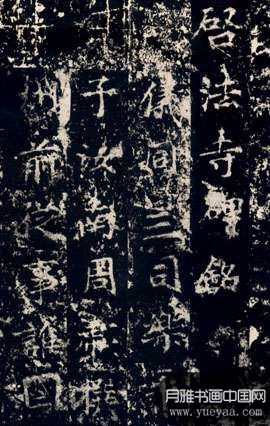 啓法寺碑銘
儀同三司樂
子汝南周
州前從事譙國
月雅书画中国网
www.yueyaa.com